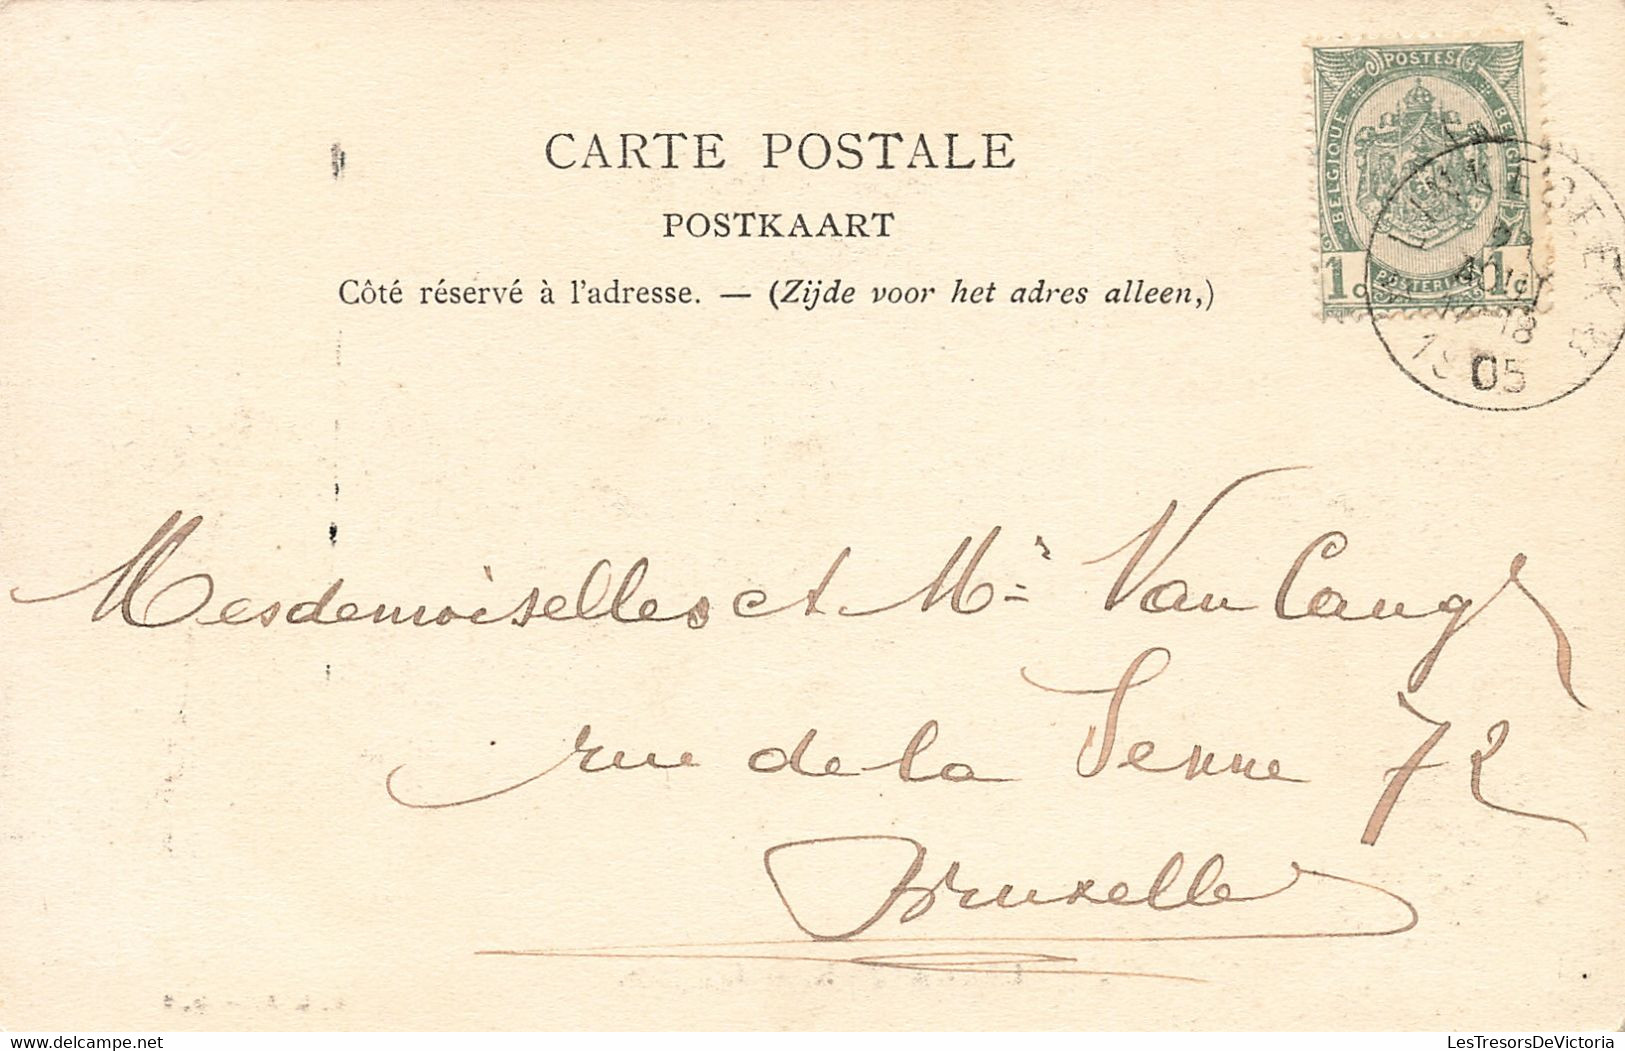 CARTE POSTALE
POSTKAART
Côté réservé à l'adresse. — (Zijde voor het adres alleen,)
POSTES
BELGIQUE
BELGIË
1c
1c
POSTERIJEN
AOUT
17-18
1905
Mesdemoiselles et Mr Van Camp
rue de la Senne 72
Bruxelles
LesTresorsDeVictoria